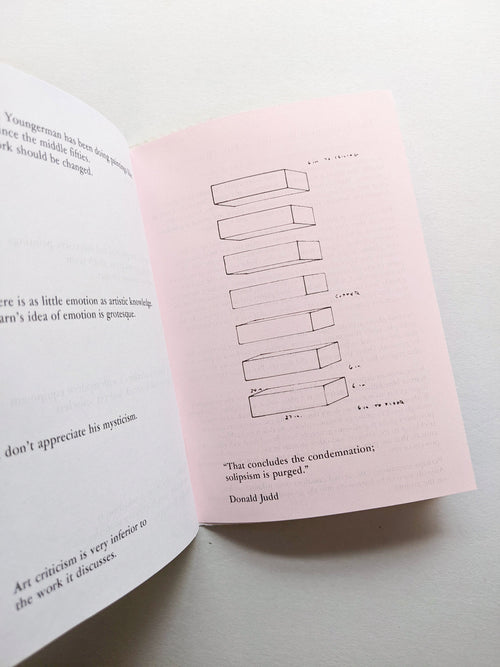 Youngerman has been doing paintings
ince the middle fifties.
ork should be changed.
ere is as little emotion as artistic knowledge.
arn's idea of emotion is grotesque.
don't appreciate his mysticism.
Art criticism is very inferior to
the work it discusses.
6 in to ceiling
6 in
20 in
27 in.
6 in to floor
"That concludes the condemnation;
solipsism is purged."
Donald Judd